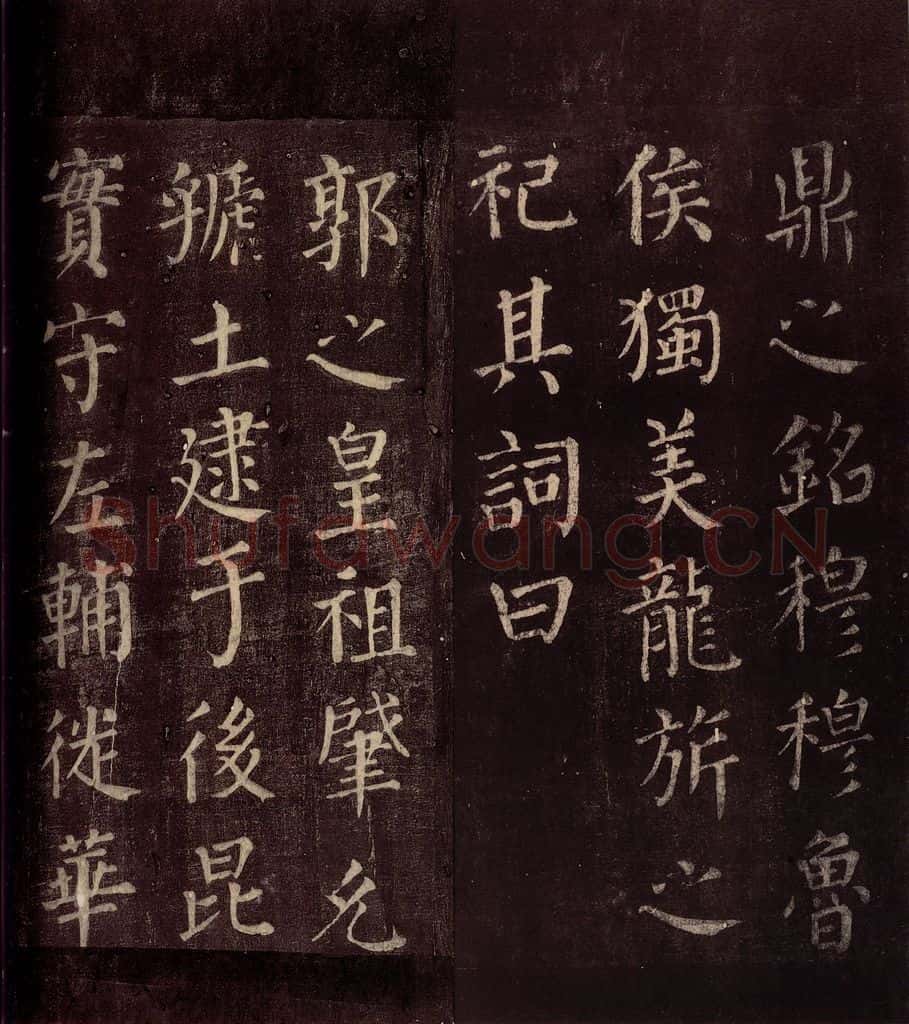 鼎之銘穆穆魯
侯獨美龍旂之
祀其詞曰
郭之皇祖肇允
虢土逮于後昆
實守左輔徙華
Shufawang.CN